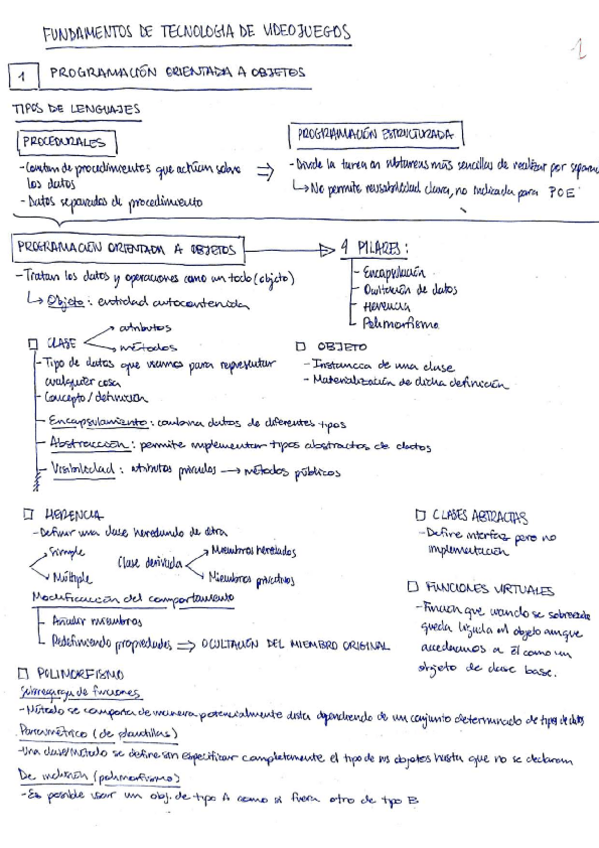 FUNDAMENTOS DE TECNOLOGIA DE VIDEOJUEGOS
1
1 PROGRAMACIÓN ORIENTADA A OBJETOS
TIPOS DE LENGUAJES
PROCEDURALES
- Constan de procedimientos que actúan sobre
los datos
- Datos separados de procedimiento
⇒
PROGRAMACIÓN ESTRUCTURADA
- Divide la tarea en subtareas más sencillas de realizar por separa
↳ No permite reusabilidad clara, no indicada para POE
PROGRAMACIÓN ORIENTADA A OBJETOS → 4 PILARES:
- Encapsulación
- Ocultación de datos
- Herencia
- Polimorfismo
- Tratan los datos y operaciones como un todo (objeto)
↳ Objeto: entidad autocontenida
□ CLASE
atributos
métodos
- Tipo de datos que usamos para representar
cualquier cosa
- Concepto / definición
- Encapsulamiento: combina datos de diferentes tipos
- Abstracción: permite implementar tipos abstractos de datos
- Visibilidad: atributos privados → métodos públicos
□ OBJETO
- Instancia de una clase
- Materialización de dicha definición
□ HERENCIA
- Definir una clase heredando de otra
Simple
Múltiple
Clase derivada
Miembros heredados
Miembros privativos
Modificación del comportamiento
- Añadir miembros
- Redefiniendo propiedades ⇒ OCULTACIÓN DEL MIEMBRO ORIGINAL
□ CLASES ABSTRACTAS
- Define interfaz pero no
implementación
□ FUNCIONES VIRTUALES
- Función que cuando se sobreescribe
queda ligada al objeto aunque
accedamos a él como un
objeto de clase base.
□ POLIMORFISMO
Sobrecarga de funciones
- Método se comporta de manera potencialmente distta dependiendo de un conjunto determinado de tipos de datos
Paramétrico (de plantillas)
- Una clase/método se define sin especificar completamente el tipo de sus objetos hasta que no se declaran
De inclusión (polimorfismo)
- Es posible usar un obj. de tipo A como si fuera otro de tipo B